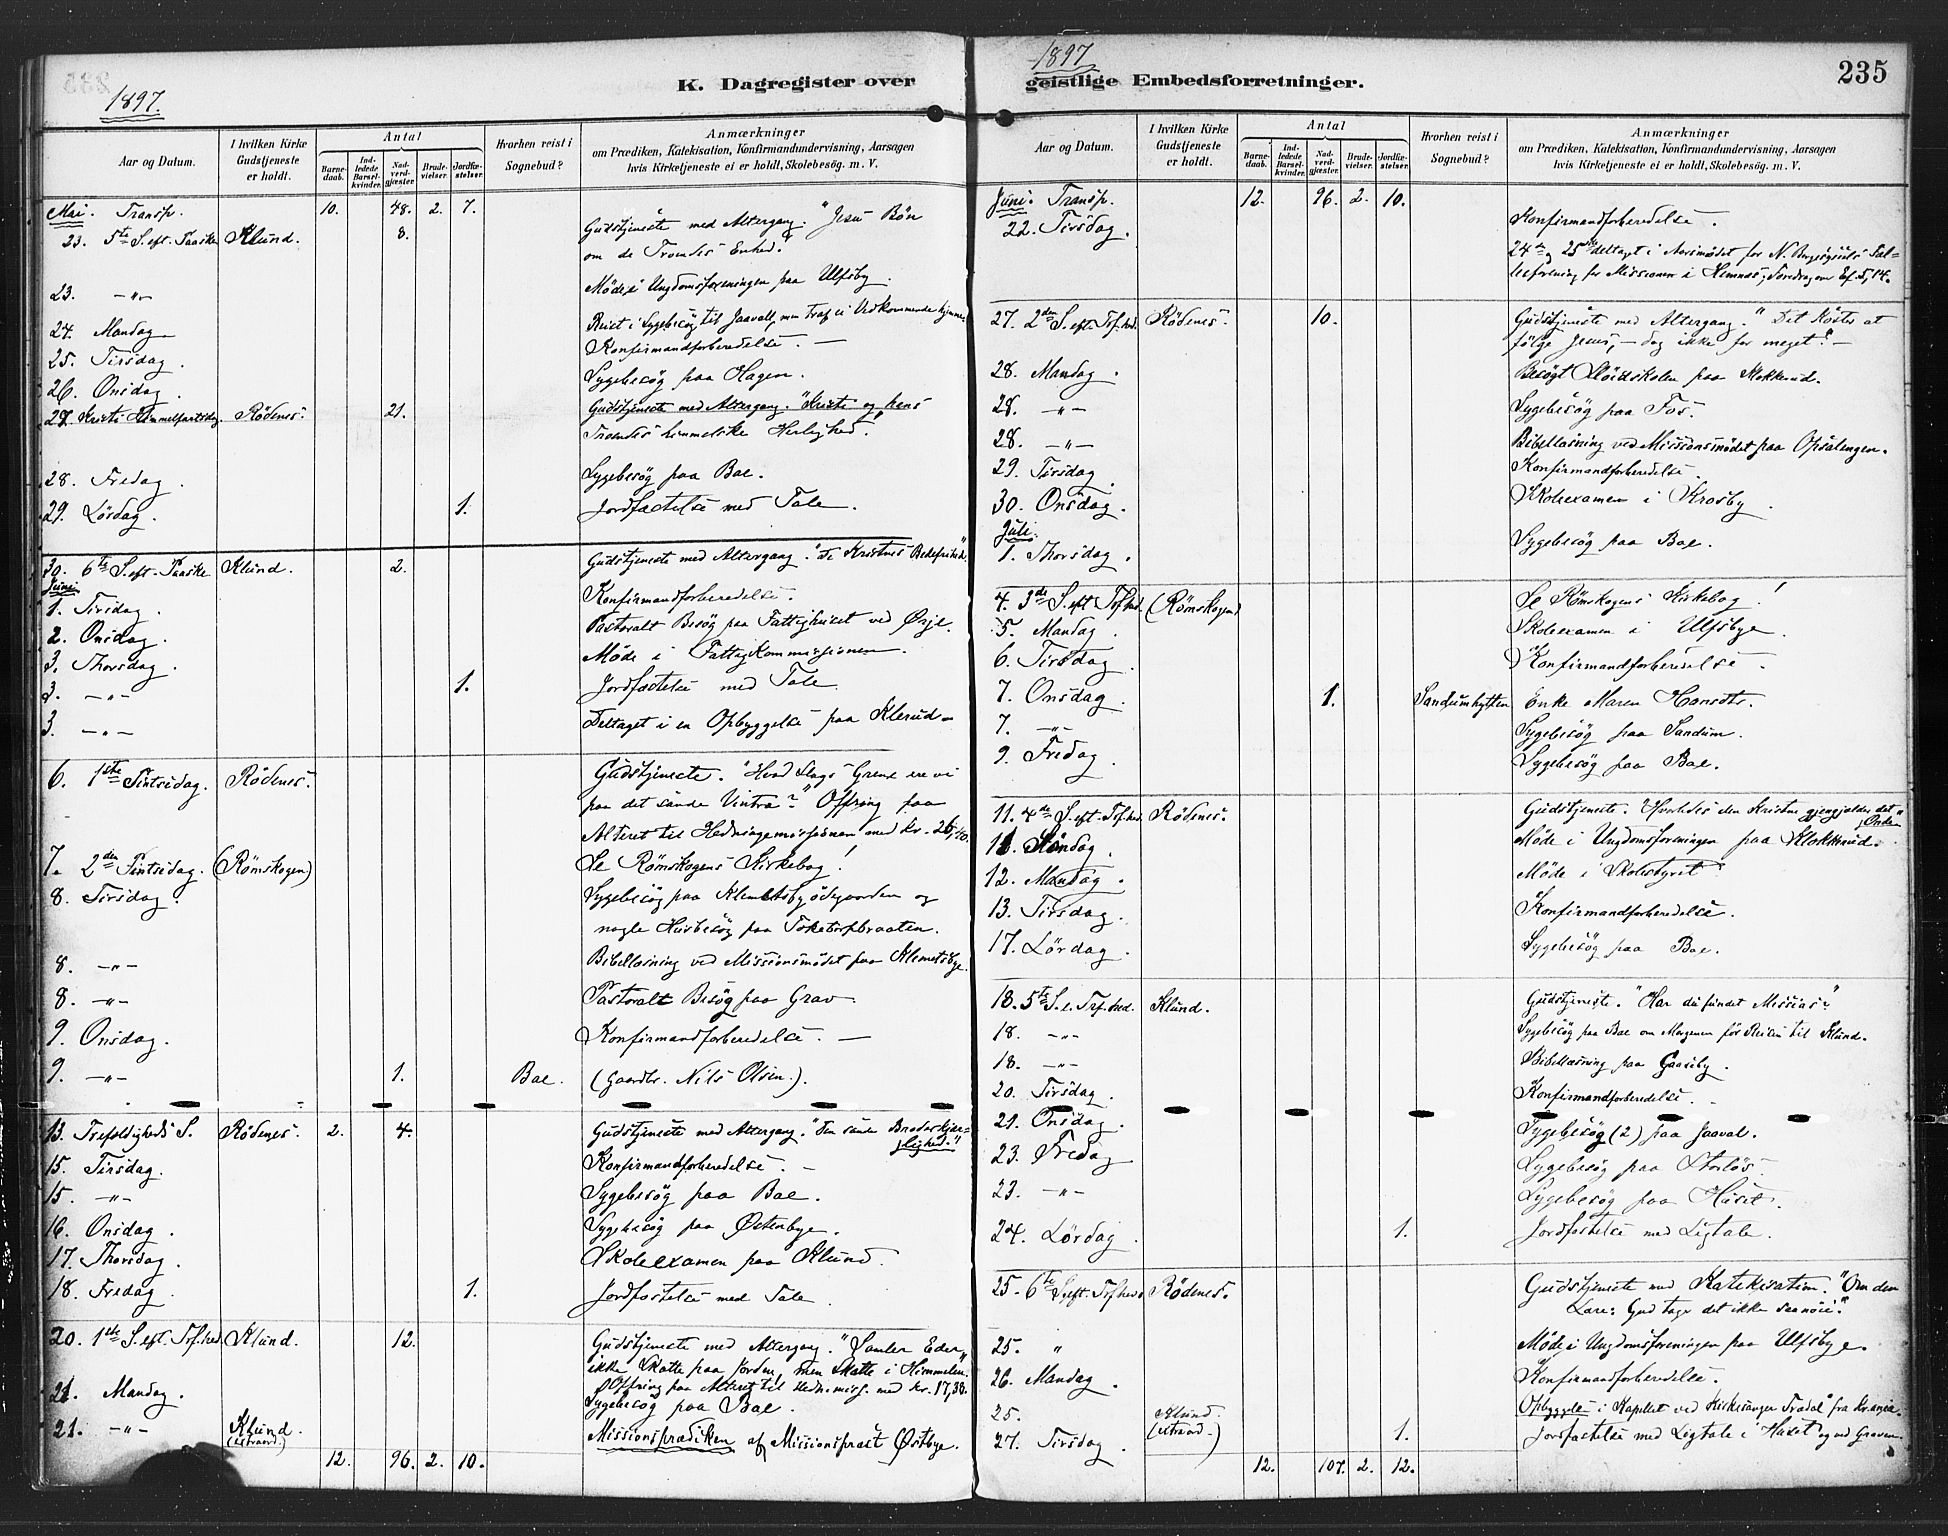 1897.
K. Dagregister over
Aar og Datum.
I hvilken Kirke Gudstjeneste er holdt.
Antal
Barnedaab.
Indledede Barselkvinder.
Nadverdgjæster.
Brudevielser.
Jordfæstelser.
Hvorhen reist i Sognebud?
Anmærkninger
om Prædiken, Katekisation, Konfirmandundervisning, Aarsagen
hvis Kirketjeneste ei er holdt, Skolebesøg. m. V.
Mai. Transp. 10. 48. 2. 7.
23. 5te S. eft. Paaske Klund. 8. Gudstjeneste med Altergang. "Jesu Bøn
om de Troendes Enhed."
23. -"- Møde i Ungdomsforeningen paa Ulfsby.
24. Mandag Reist i Sygebesøg til Jaavall, men traf ei Vedkommende hjemme.
25. Tirsdag. Konfirmandforberedelse. —
26. Onsdag. Sygebesøg paa Hagen.
27. Kristi Himmelfartsdag. Rødenes. 21. Gudstjeneste med Altergang. "Kristi og hans
Troendes himmelske Herlighed."
28. Fredag. Sygebesøg paa Bae.
29. Lørdag. 1. Jordfæstelse med Tale.
30. 6te S. eft. Paaske Klund. 2. Gudstjeneste med Altergang. "De Kristnes
Juni
1. Tirsdag. Konfirmandforberedelse.
2. Onsdag. Pastoralt Besøg paa Fattighuset ved Ørje.
3. Thorsdag. Møde i Fattigkommissionen.
3. -"- 1. Jordfæstelse med Tale.
3. -"- Deltaget i en Opbyggelse paa Klerud.
6. 1ste Pintsedag. Rødenes. Gudstjeneste. "Hvad Slags Grene ere vi
paa det sande Vintræ?" Offring paa
Alteret til Hedningemissionen med kr. 26,40.
7. 2den Pintsedag. (Rømskogen) Se Rømskogens Kirkebog!
8. Tirsdag. Sygebesøg paa og
nogle Husbesøg paa
8. -"- Bibellæsning ved Missionsmødet paa Klemetsbye.
8. -"- Pastoralt Besøg paa Grav.
9. Onsdag. Konfirmandforberedelse. —
9. -"- 1. Bae. (Gaardbr. Nils Olsen.).
13. Trefoldigheds S. Rødenes. 2. 4. Gudstjeneste med Altergang. "Den sande Broderkjær-
lighed."
15. Tirsdag. Konfirmandforberedelse. —
15. -"- Sygebesøg paa Bae.
16. Onsdag. Sygebesøg paa Østenbye.
17. Thorsdag. Skoleexamen paa Klund.
18. Fredag. 1. Jordfæstelse med Tale.
20. 1ste S. eft. Tref.hed Klund. 12. Gudstjeneste med Altergang. "Samler Eder
ikke Skatte paa Jorden, men Skatte i Himmelen."
Offring paa Alteret til Hedn.miss. med kr. 17,38.
21. Mandag. Sygebesøg paa Bae.
21. -"- Klund. Missionsprædiken af Missionspræst Østbye.
12. 96. 2. 10.
1897
geistlige Embedsforretninger.
235
Aar og Datum.
I hvilken Kirke Gudstjeneste er holdt.
Antal
Barnedaab.
Indledede Barselkvinder.
Nadverdgjæster.
Brudevielser.
Jordfæstelser.
Hvorhen reist i Sognebud?
Anmærkninger
om Prædiken, Katekisation, Konfirmandundervisning, Aarsagen
hvis Kirketjeneste ei er holdt, Skolebesøg. m. V.
Juni. Transp. 12. 96. 2. 10.
22. Tirsdag. Konfirmandforberedelse.
24de og 25de deltaget i Aarsmødet for N.
for Missionen i Hemnæs; Foredrag over Ef. 5, 14.
27. 2den S. eft. Tref.hed. Rødenes. 10. Gudstjeneste med Altergang. "Det koster at
følge Jesus, — dog ikke for meget". —
28. Mandag. Besøgt Sløidskolen paa Mokkerud.
28. -"- Sygebesøg paa Fos.
28. -"- Bibellæsning ved Missionsmødet paa Opsalengen.
29. Tirsdag Konfirmandforberedelse.
30. Onsdag. Skoleexamen i Krosby.
Juli.
1. Thorsdag. Sygebesøg paa Bae.
4. 3de S. eft. Tref.hed. (Rømskogen) Se Rømskogens Kirkebog!
5. Mandag. Skoleexamen i Ulfsbye.
6. Tirsdag. Konfirmandforberedelse.
7. Onsdag. 1. Sandumhytten Enke Maren Hansdtr.
7. -"- Sygebesøg paa Sandum.
9. Fredag. Sygebesøg paa Bae.
11. 4de S. eft. Tref.hed. Rødenes. Gudstjeneste. "Hvorledes den Kristne gjengjelder det
Onde."
11. Søndag. Møde i Ungdomsforeningen paa Klokkerud.
12. Mandag. Møde i Skolestyret
13. Tirsdag. Konfirmandforberedelse.
17. Lørdag. Sygebesøg paa Bae.
18. 5te S. e. Tref.hed. Klund. Gudstjeneste. "Har du fundet Messias?"
18. -"- Sygebesøg paa Bae om Morgenen før Reisen til Klund.
18. -"- Bibellæsning paa Gaaseby.
20. Tirsdag. Konfirmandforberedelse.
21. Onsdag. Sygebesøg (2) paa Jaaval.
23. Fredag Sygebesøg paa
23. -"- Sygebesøg paa Huset.
24. Lørdag. 1. Jordfæstelse med Ligtale.
25. 6te S. eft. Tref.hed. Rødenes. Gudstjeneste med Katekisation. "Om den
Lære: Gud tage det ikke saa nøie".
25. " Møde i Ungdomsforeningen paa Ulfsbye.
26. Mandag. Konfirmandforberedelse.
25. Klund. Opbyggelse i Kapellet ved Kirkesanger fra Kr.ania.
27. Tirsdag. 1. Jordfæstelse med Ligtale i Huset og ved Graven.
12. 107. 2. 12.